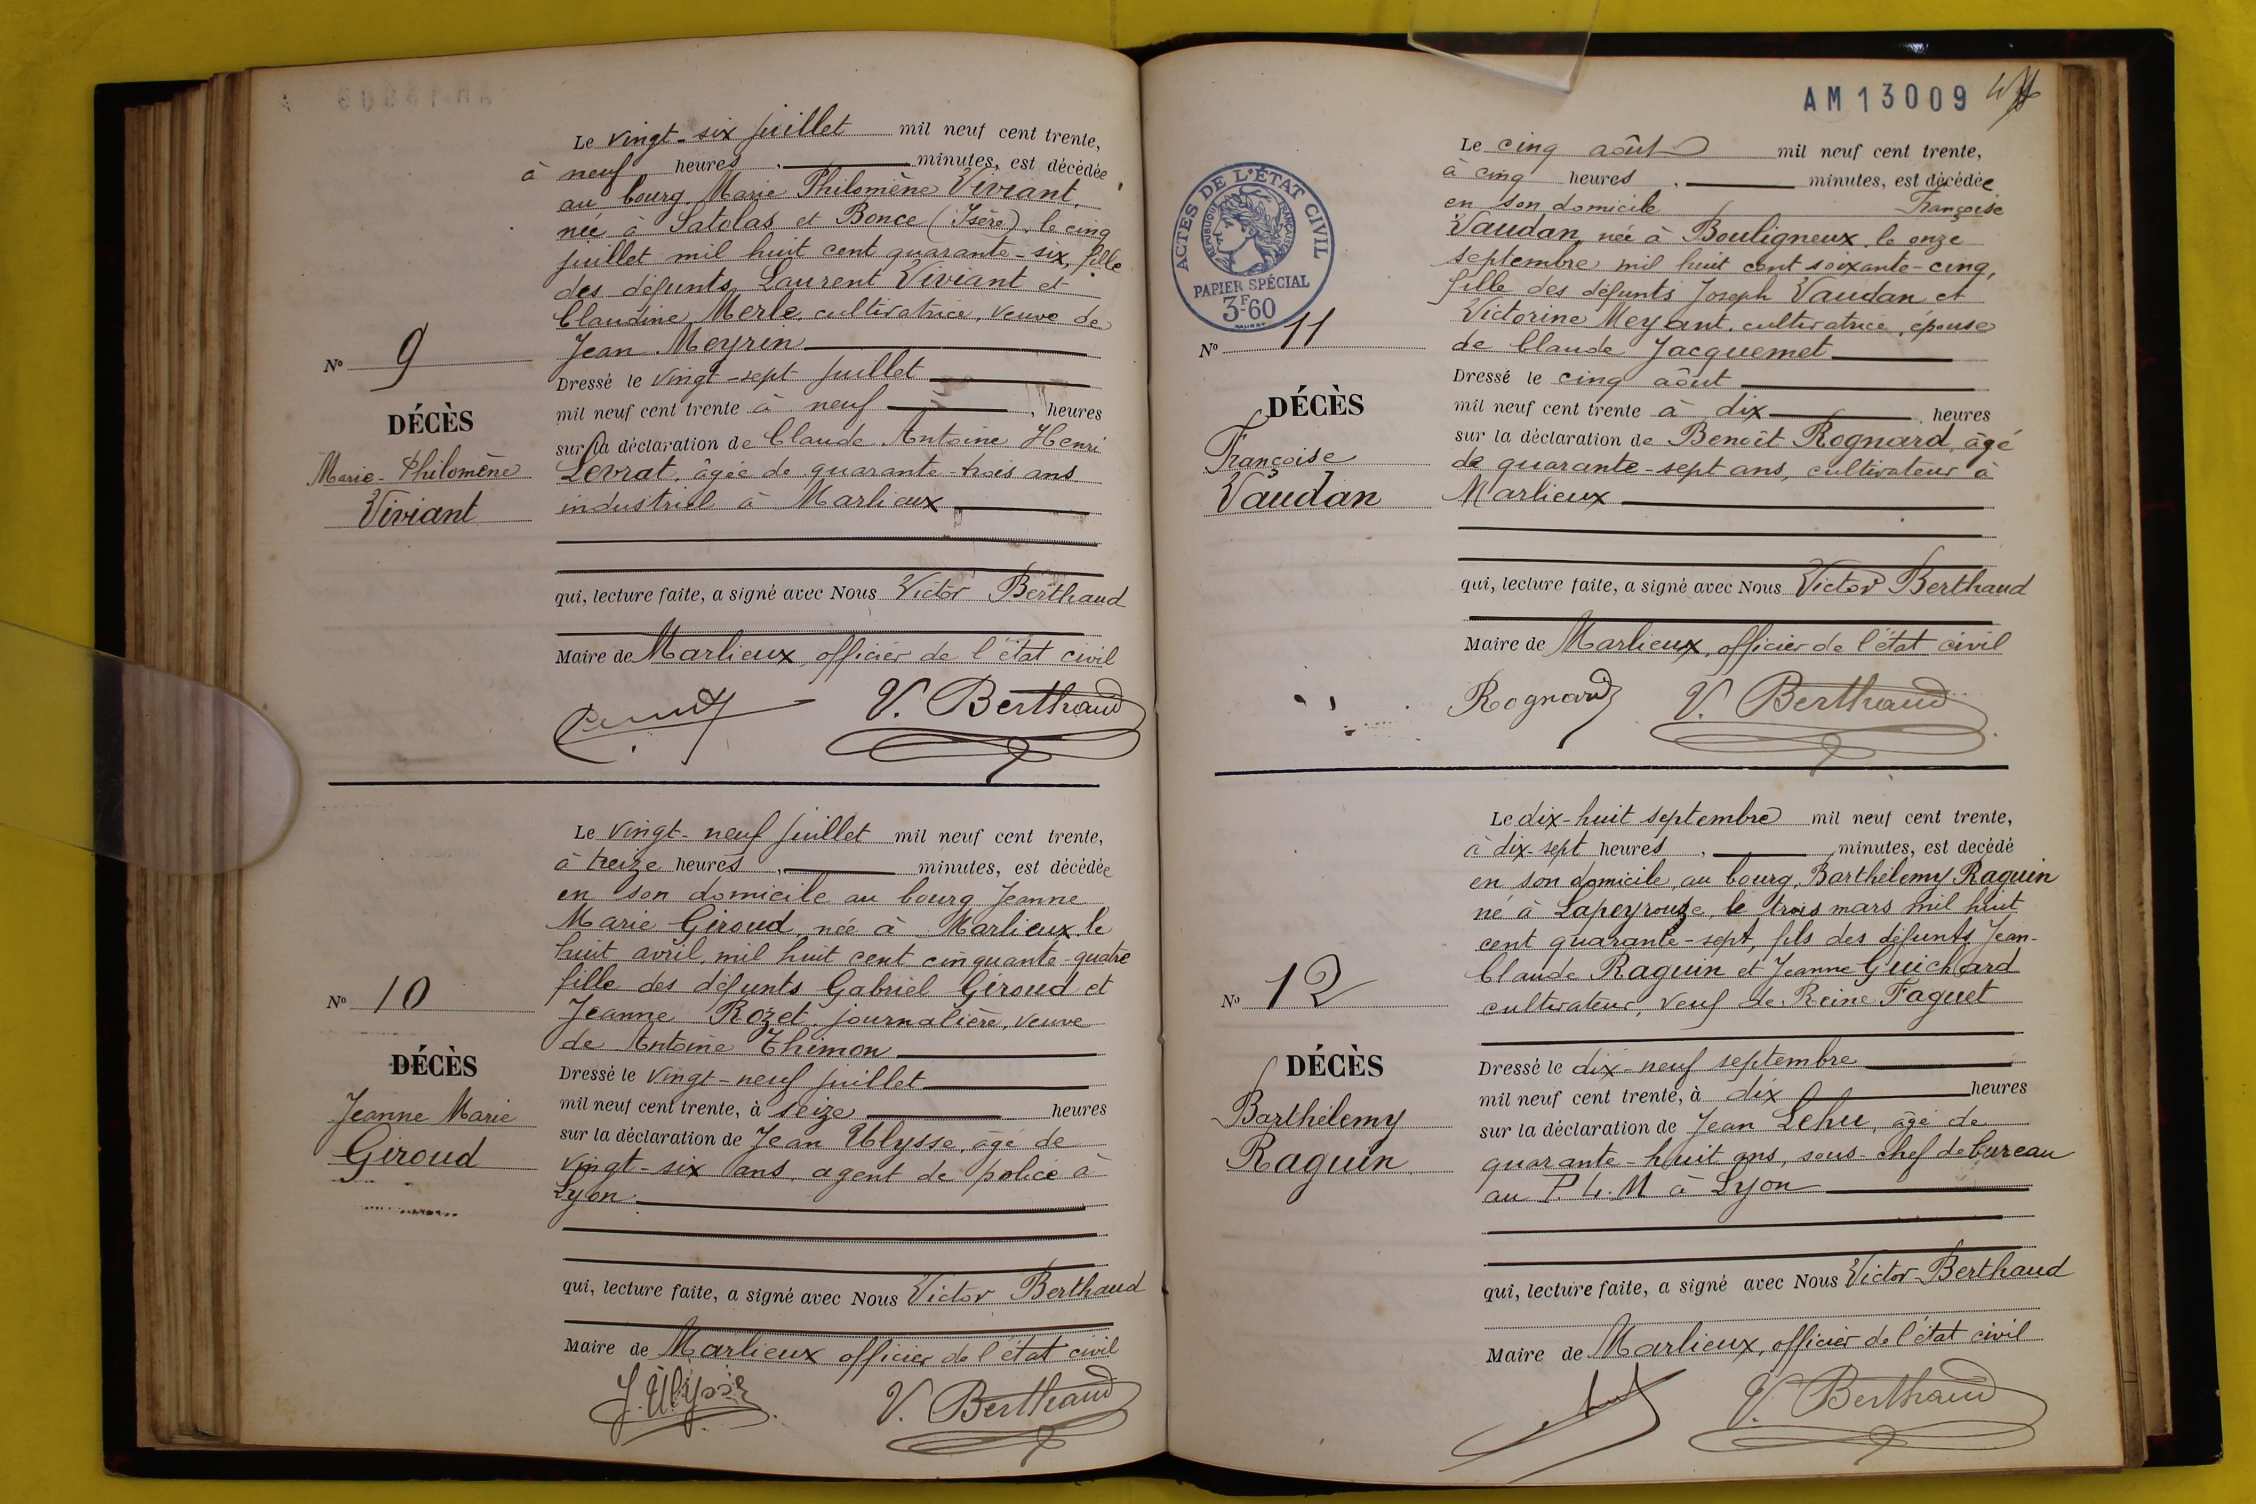 Le vingt-six juillet mil neuf cent trente,
à neuf heures, minutes, est décédée
au bourg Marie Philomène Viviant,
née à Satolas et Bonce (Isère), le cinq
juillet mil huit cent quarante-six, fille
des défunts Laurent Viviant et
Claudine Merle, cultivatrice, veuve de
Jean Meyrin
Nº 9
Dressé le vingt-sept juillet
mil neuf cent trente à neuf, heures
DÉCÈS
sur la déclaration de Claude Antoine Henri
Marie-Philomène
Levrat, âgée de quarante-trois ans
Viviant
industriel à Marlieux
qui, lecture faite, a signé avec Nous Victor Berthaud
Maire de Marlieux, officier de l'état civil
V. Berthaud
Le vingt-neuf juillet mil neuf cent trente,
à treize heures, minutes, est décédée
en son domicile au bourg Jeanne
Marie Giroud, née à Marlieux le
huit avril, mil huit cent cinquante-quatre
fille des défunts Gabriel Giroud et
Nº 10
Jeanne Rozet, journalière, veuve
de Antoine Thimon
DÉCÈS
Dressé le vingt-neuf juillet
Jeanne Marie
mil neuf cent trente, à seize heures
Giroud
sur la déclaration de Jean Ulysse, âgé de
vingt-six ans, agent de police à
Lyon
qui, lecture faite, a signé avec Nous Victor Berthaud
Maire de Marlieux officier de l'état civil
J. Ulysse V. Berthaud
AM13009
ACTES DE L'ÉTAT CIVIL
RÉPUBLIQUE FRANÇAISE
PAPIER SPÉCIAL
3F60
Le cinq août mil neuf cent trente,
à cinq heures, minutes, est décédée
en son domicile Françoise
Vaudan, née à Bouligneux, le onze
septembre mil huit cent soixante-cinq,
fille des défunts Joseph Vaudan et
Victorine Meyant, cultivatrice, épouse
de Claude Jacquemet
Nº 11
Dressé le cinq août
DÉCÈS
mil neuf cent trente à dix heures
Françoise
sur la déclaration de Benoît Rognard, âgé
Vaudan
de quarante-sept ans, cultivateur à
Marlieux
qui, lecture faite, a signé avec Nous Victor Berthaud
Maire de Marlieux, officier de l'état civil
Rognard V. Berthaud
Le dix-huit septembre mil neuf cent trente,
à dix-sept heures, minutes, est decédé
en son domicile, au bourg, Barthélemy Raguin
né à Lapeyrouze, le trois mars mil huit
cent quarante-sept, fils des défunts Jean-
Claude Raguin et Jeanne Guichard
Nº 12
cultivateur, veuf de Reine Faguet
DÉCÈS
Dressé le dix-neuf septembre
Barthélemy
mil neuf cent trente, à dix heures
Raguin
sur la déclaration de Jean Lehu, âgé de
quarante-huit ans, sous-chef de bureau
au P. L. M à Lyon
qui, lecture faite, a signé avec Nous Victor Berthaud
Maire de Marlieux, officier de l'état civil
V. Berthaud